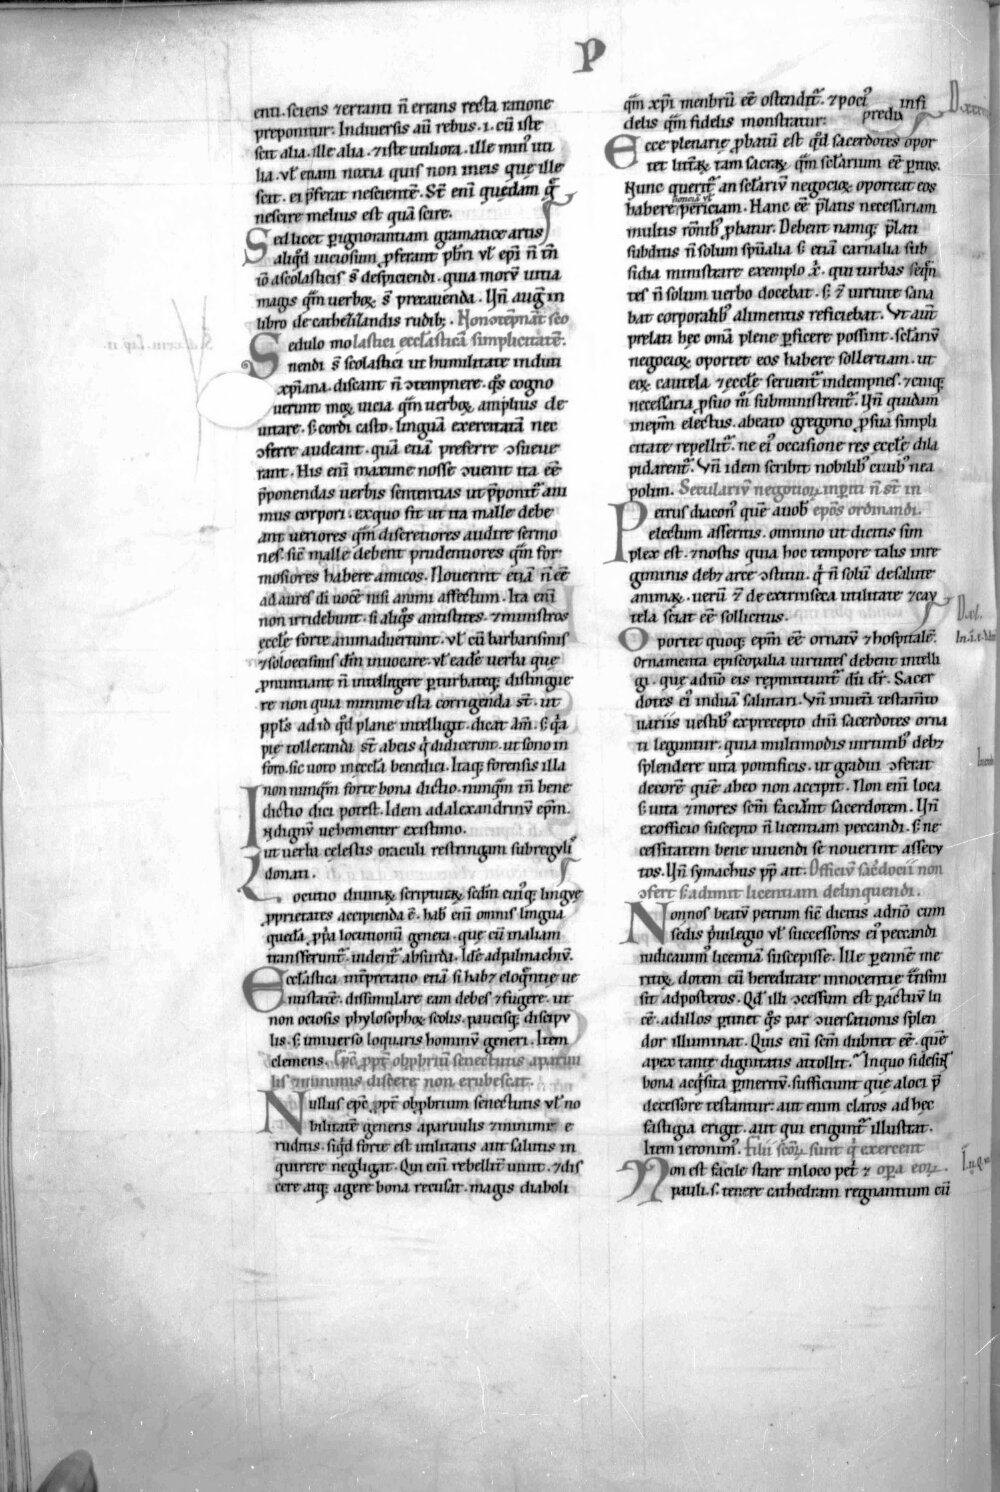 P
enti. sciens ⁊ erranti n̄ errans recta ratione
preponitur: In diuersis aū rebus .i. cū iste
scit alia. ille alia. ⁊ iste utiliora. ille min᷒ uti
lia. vl̓ etiam noxia quis non in eis que ille
scit. ei p̄ferat nescientē. St̄ eni̅ quędam q̄
nescire melius est quā scire.
Sed licet ꝑ ignorantiam gramatice artis
aliqd̓ uiciosum ꝓferant pbr̄i vl̓ epi̅ n̄ tn̄
iō a scolasticis s̄t despiciendi. quia morū uitia
magis qm̄ uerboꝝ s̄t precauenda. Vn̄ aug̅ in
libro de cathezizandis rudibꝫ. Non ↄtēpnāt sco
Sedulo mo lastici eccl̓asticā simplicitatē.
nendi s̄t scolastici ut humilitate induti
xp̅iana. discant n̄ ↄtempnere. qs̓ cogno
uerint moꝝ uicia qm̄ uerboꝝ amplius de
uitare. s; cordi casto. linguā exercitatā nec
ↄferre audeant. quā etiā preferre ↄsueue
rant. His eni̅ maxime nosse ↄuenit ita eē
p̄ponendas uerbis sententias ut p̄ponit᷑ ani
mus corpori. ex quo fit ut ita malle debe
ant ueriores qm̄ discretiores audire sermo
nes. sic̄ malle debent prudentiores qm̄ for
mosiores habere amicos. Nouerint etiā n̄ eē
ad aures di̅ uocē nisi animi affectum. Ita eni̅
non irridebunt. si aliqs̓ antistites. ⁊ ministros
eccl̓e forte animaduerunt. vl̓ cū barbarismis
⁊ soloecismis dm̄ inuocare. vl̓ eadē verba que
ꝓnuntiant n̄ intelligere ꝑturbateqꝫ distingue
re non quia minime ista corrigenda st̄. ut
ppl̓s ad id qd̓ plane intelligit. dicat am̄. s; q̓a
pie tollerandi st̄ ab eis q̓ didicerint. ut sono in
foro. sic uoto in eccl̓a benedici. Itaqꝫ forensis illa
non nunqm̄ forte bona dictio. nunqm̄ tn̄ bene
dictio dici potest. Idem ad alexandrinū epm̄.
Indignū uehementer existimo.
ut uerba celestis oraculi restringam sub regul̓
donati.
Locutio diuinaꝝ scripturaꝝ scdm̄ cui᷒qꝫ linguę
ꝓprietates accipienda ē. hab; eni̅ omnis lingua
quedā ꝓp̓a locutionū genera. que cū in aliam
transferunt᷑. uident᷑ absurda. Idē ad palmachiū.
Eccl̓astica int̓pretatio etiā si habꝫ eloq̄ntię ue
nustatē. dissimulare eam debes ⁊ fugere. ut
non ociosis phylosophoꝝ scolis. paucisqꝫ discipu
lis. s; uniuerso loquaris hominū generi. Item
clemens. Epc̄ ꝓpt̓ obꝓbriū senectutis a paruu
lis ⁊ minimis discere non erubescat.
Nullus epc̄ ꝓpt̓ obꝓbrium senectutis vl̓ no
bilitatē generis a paruulis ⁊ minime e
ruditis. siqd̓ forte est utilitatis aut salutis in
quirere negligat. Qui eni̅ rebellit̓ uiuit. ⁊ dis
cere atqꝫ agere bona recusat. magis diaboli
qm̄ xp̅i menbrū eē ostendit᷑. ⁊ poci᷒ infi
delis qm̄ fidelis monstratur: predix
Ecce plenarie ꝓbatū est qd̓ sacerdotes opor
tet litt̓aꝝ tam sacraꝝ qm̄ sc̄larium eē p̓itos.
Nunc querit᷑ an sc̄lariū negocioꝝ oporteat eos
noticiā vl̓
habere periciam. Hanc eē p̄latis necessariam
multis rōnib᷒ ꝓbatur. Debent namqꝫ p̄lati
subditis n̄ solum spūalia s; etiā carnalia sub
sidia ministrare exemplo x̓. qui turbas seqn̄
tes n̄ solum uerbo docebat. s; ⁊ uirtute sana
bat corporalib᷒ alimentis reficiebat. Vt aūt
prelati hec omā plene ꝑficere possint. sc̄lariū
negocioꝝ oportet eos habere sollertiam. ut
eoꝝ cautela ⁊ eccl̓e seruent᷑ indempnes. ⁊ cuiqꝫ
necessaria ꝓ suo m̄ subministrent᷑. Vn̄ quidam
in epm̄ electus. a beato gregorio ꝓ sua simpli
citate repellit᷑. ne ei᷒ occasione res eccl̓e dila
pidarent᷑. Vn̄ idem scribit nobilib᷒ ciuib᷒ nea
polim. Seculariū negotioꝝ inp̓iti n̄ st̄ in
Petrus diacon᷒ quē a uob̓ epōs ordinandi.
electum asseritis. omnino ut dicitis sim
plex est. ⁊ nostis quia hoc tempore talis in re
giminis debꝫ arce ↄstitui. q̓ n̄ solū de salute
animaꝝ. uerū ⁊ de extrinseca utilitate ⁊ cau
tela sciat eē sollicitus.
Oportet quoqꝫ epm̄ eē ornatū ⁊ hospitalē.
Ornamenta episcopalia uirtutes debent intelli
gi. que ad nō eis repmittunt᷑ dū dr̄. Sacer
dotes ei᷒ induā salutari. Vn̄ in uet̓i testamt̄o
uariis uestib᷒ ex precepto dm̄i sacerdotes orna
ti leguntur. quia multimodis uirtutib᷒ debꝫ
splendere uita pontificis. ut gradui ↄferat
decorē quē ab eo non accipit. Non eni̅ loca
s; uita ⁊ mores scm̄ faciunt sacerdotem. Vn̄
ex officio suscepto n̄ licentiam peccandi. s; ne
cessitatem bene uiuendi se nouerint assecu
tos. Vn̄ symachus pp̄ ait. Officiū sac̓docii non
ↄfert s; adimit licentiam delinquendi.
Non nos beatū petrum sic̄ dicitis a dn̄o cum
sedis p̓uilegio vl̓ successores ei᷒ peccandi
iudicauim᷒ licentiā suscepisse. Ille perēnē me
ritoꝝ dotem cū hereditate innocentie t̓nsmi
sit ad posteros. Qd̓ illi ↄcessum est ꝑ actuū lu
cē. ad illos ꝑtinet qs̓ par ↄuersationis splen
dor illuminat. Quis eni̅ scm̄ dubitet eē. quē
apex tante dignitatis attollit. In quo si desi̅t
bona acq̓sita ꝑ meritū. sufficiunt que a loci p̄
decessore testantur. aut enim claros ad hec
fastigia erigit. aut qui erigunt᷑ illustrat.
Item ieronim᷒. filii sc̄oꝝ sunt q̓ exercent
Non est facile stare in loco pet̓ ⁊ opa eoꝝ.
pauli. s; tenere cathedram regnantium cū